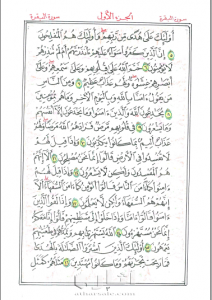 سورة البقرة الجزء الأول سورة البقرة
أُولَٰئِكَ عَلَىٰ هُدًى مِنْ رَبِّهِمْ وَأُولَٰئِكَ هُمُ الْمُفْلِحُونَ
إِنَّ الَّذِينَ كَفَرُوا سَوَاءٌ عَلَيْهِمْ أَأَنْذَرْتَهُمْ أَمْ لَمْ تُنْذِرْهُمْ
لَا يُؤْمِنُونَ خَتَمَ اللَّهُ عَلَىٰ قُلُوبِهِمْ وَعَلَىٰ سَمْعِهِمْ وَعَلَىٰ
أَبْصَارِهِمْ غِشَاوَةٌ وَلَهُمْ عَذَابٌ عَظِيمٌ وَمِنَ النَّاسِ
مَنْ يَقُولُ آمَنَّا بِاللَّهِ وَبِالْيَوْمِ الْآخِرِ وَمَا هُمْ بِمُؤْمِنِينَ
يُخَادِعُونَ اللَّهَ وَالَّذِينَ آمَنُوا وَمَا يَخْدَعُونَ إِلَّا أَنْفُسَهُمْ
وَمَا يَشْعُرُونَ فِي قُلُوبِهِمْ مَرَضٌ فَزَادَهُمُ اللَّهُ مَرَضًا وَلَهُمْ
عَذَابٌ أَلِيمٌ بِمَا كَانُوا يَكْذِبُونَ وَإِذَا قِيلَ لَهُمْ
لَا تُفْسِدُوا فِي الْأَرْضِ قَالُوا إِنَّمَا نَحْنُ مُصْلِحُونَ أَلَا إِنَّهُمْ
هُمُ الْمُفْسِدُونَ وَلَٰكِنْ لَا يَشْعُرُونَ وَإِذَا قِيلَ لَهُمْ
آمِنُوا كَمَا آمَنَ النَّاسُ قَالُوا أَنُؤْمِنُ كَمَا آمَنَ السُّفَهَاءُ أَلَا
إِنَّهُمْ هُمُ السُّفَهَاءُ وَلَٰكِنْ لَا يَعْلَمُونَ وَإِذَا لَقُوا الَّذِينَ
آمَنُوا قَالُوا آمَنَّا وَإِذَا خَلَوْا إِلَىٰ شَيَاطِينِهِمْ قَالُوا إِنَّا مَعَكُمْ
إِنَّمَا نَحْنُ مُسْتَهْزِئُونَ اللَّهُ يَسْتَهْزِئُ بِهِمْ وَيَمُدُّهُمْ فِي طُغْيَانِهِمْ
يَعْمَهُونَ أُولَٰئِكَ الَّذِينَ اشْتَرَوُا الضَّلَالَةَ بِالْهُدَىٰ
فَمَا رَبِحَتْ تِجَارَتُهُمْ وَمَا كَانُوا مُهْتَدِينَ مَثَلُهُمْ كَمَثَلِ
٣